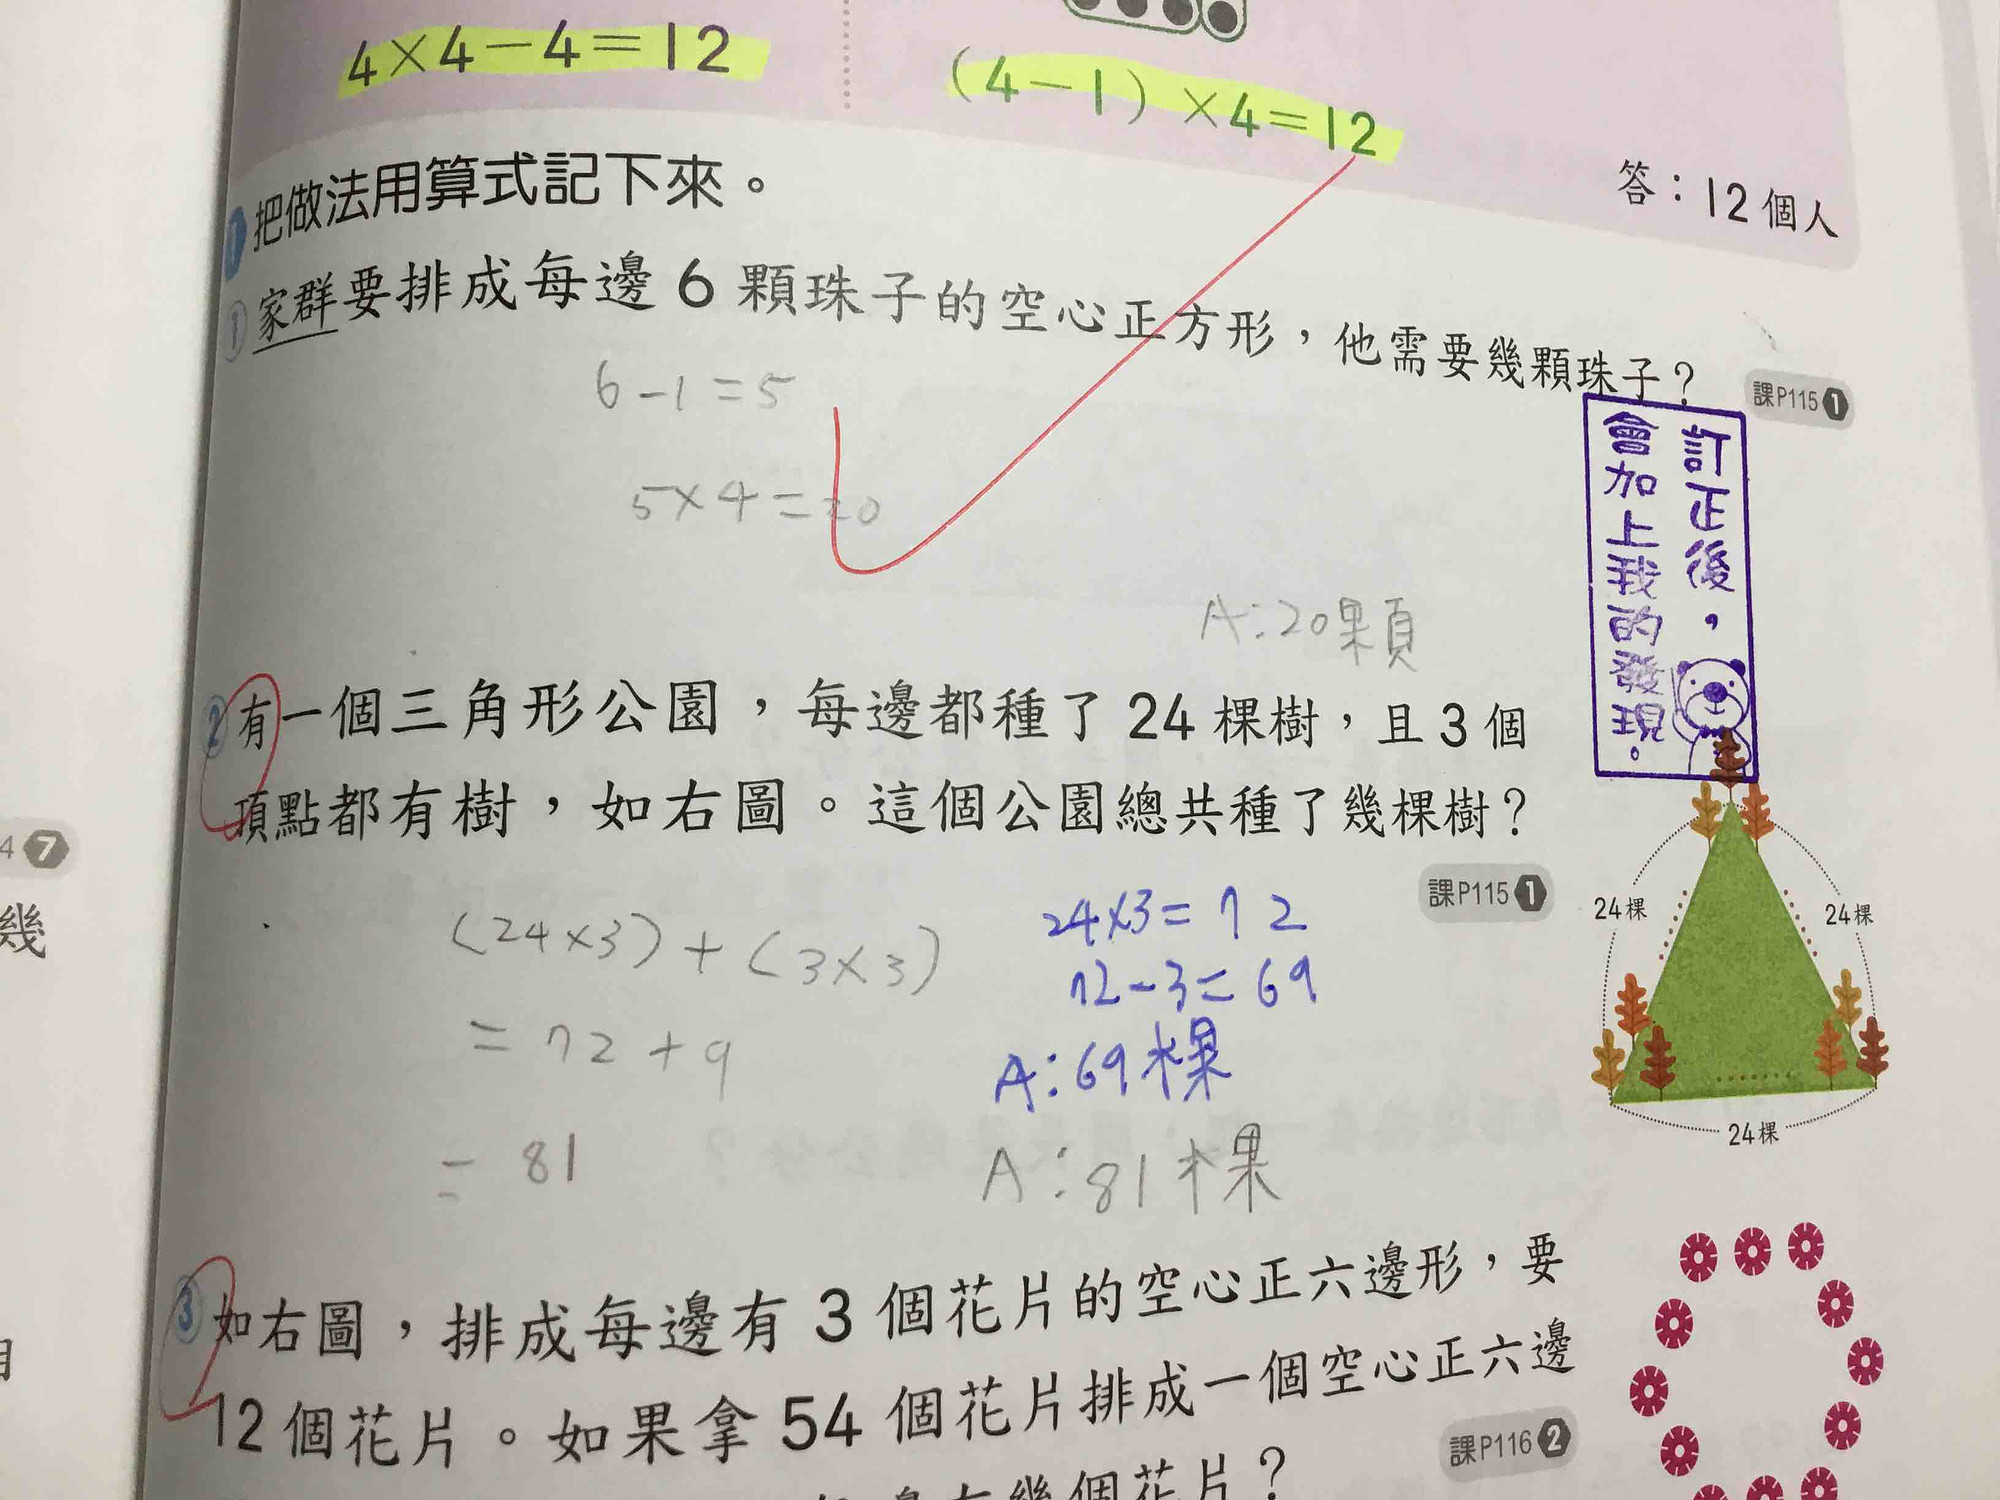 4×4－4＝12
(4－1)×4＝12
答：12個人
1 把做法用算式記下來。
1 家群要排成每邊6顆珠子的空心正方形，他需要幾顆珠子？
課P115 1
6-1=5
5×4=20
A:20顆
訂正後，
會加上我的發現。
2 有一個三角形公園，每邊都種了24棵樹，且3個
頂點都有樹，如右圖。這個公園總共種了幾棵樹？
課P115 1
(24×3)+(3×3)
=72+9
=81
24×3=72
72-3=69
A:69棵
A:81棵
24棵
24棵
24棵
3 如右圖，排成每邊有3個花片的空心正六邊形，要
12個花片。如果拿54個花片排成一個空心正六邊
課P116 2
幾個花片？
4 7
幾